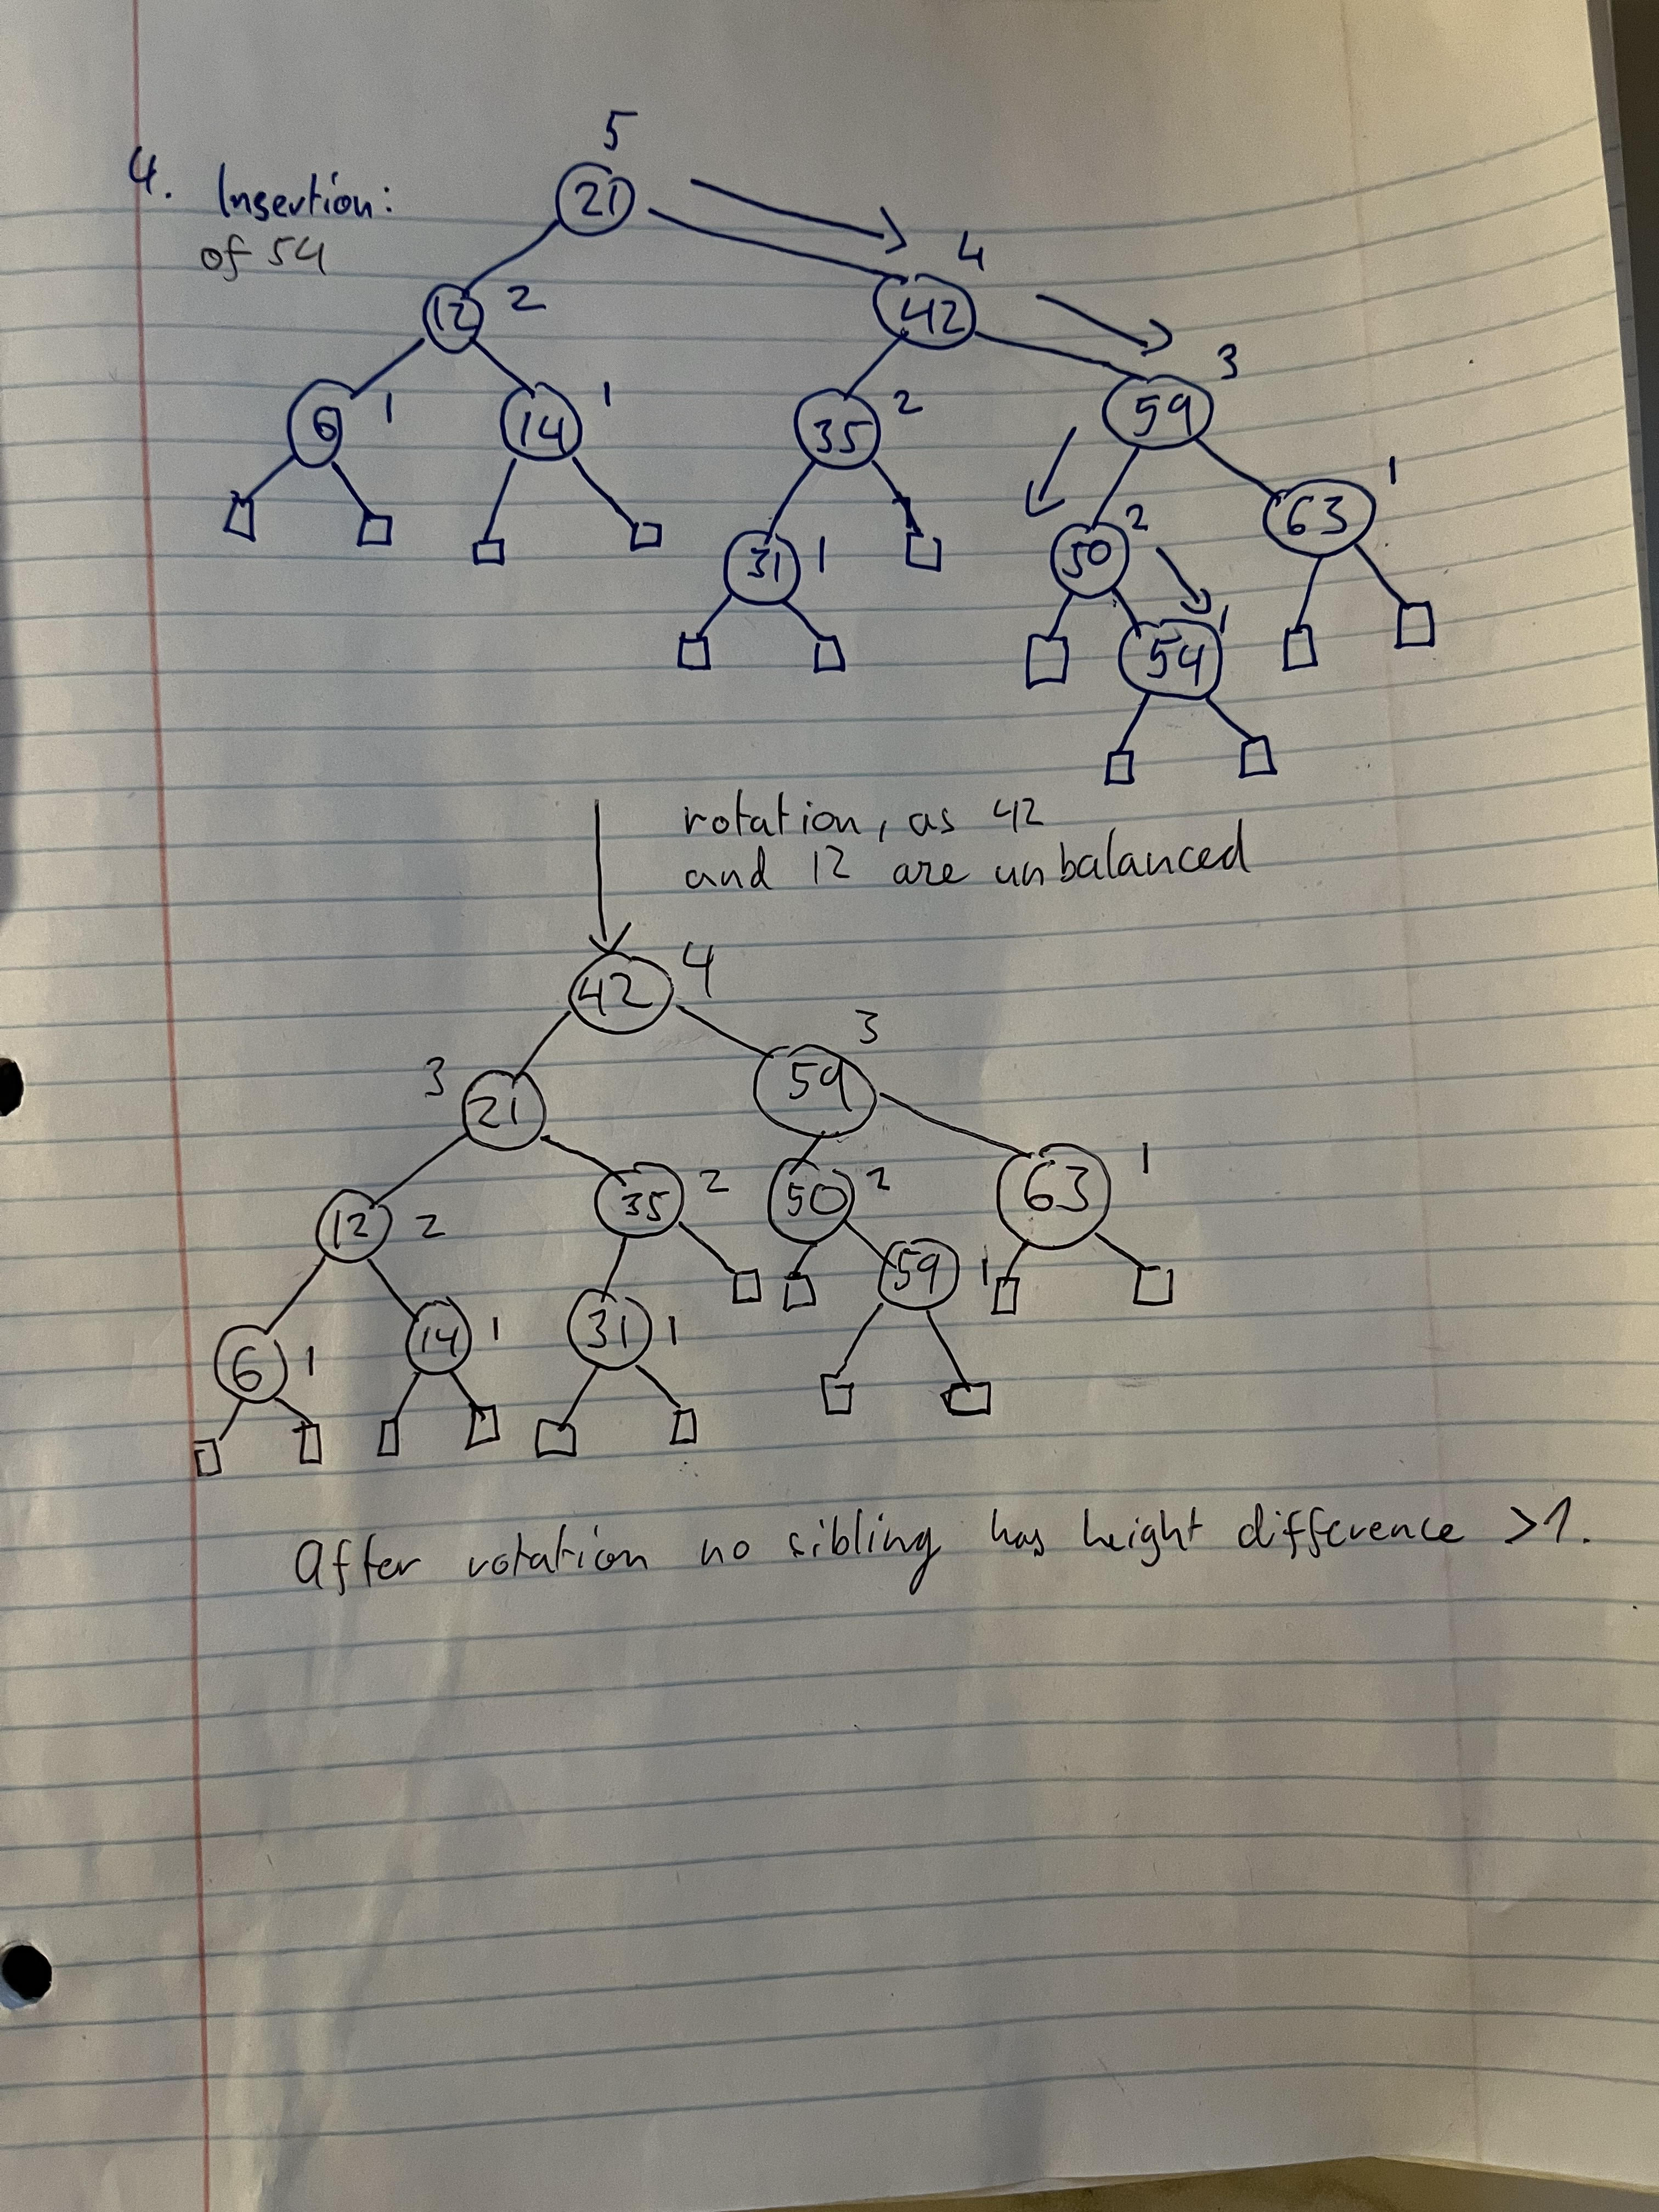 4. Insertion:
of 54
5
21
4
12 2 42
3
6 1 14 1 35 2 59
1
63
31 1 50 2
54 1
rotation, as 42
and 12 are unbalanced
42 4
3
3 21 59
12 2 35 2 50 2 63 1
59 1
6 1 14 1 31 1
After rotation no sibling has height difference >1.